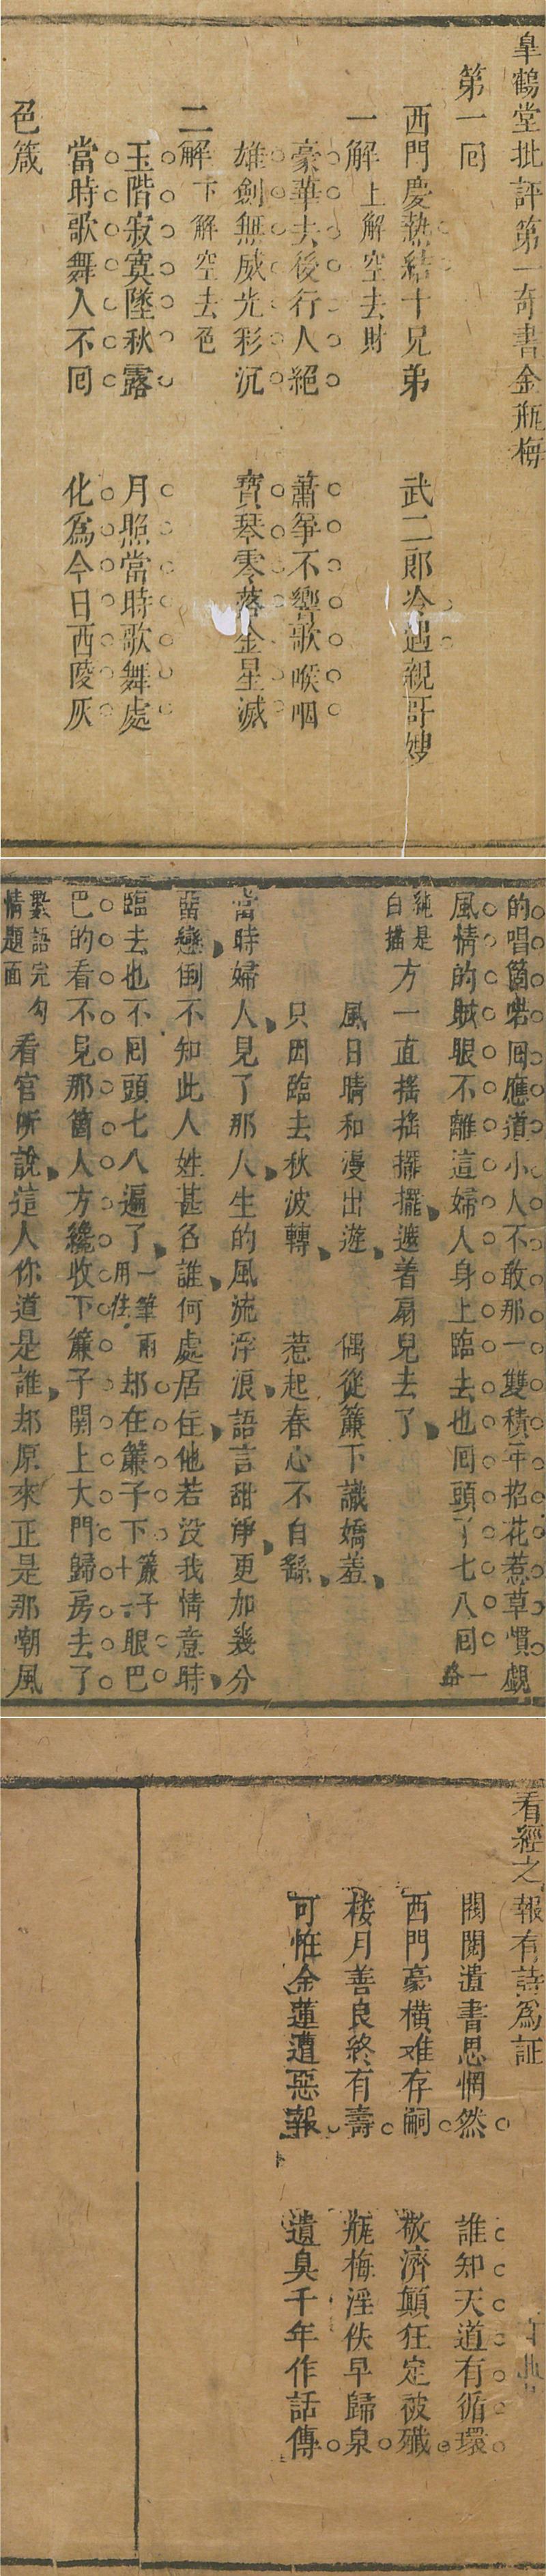 皐鶴堂批評第一奇書金瓶梅
第一囘
西門慶熱結十兄弟　武二郎冷遇親哥嫂
一解　上解空去財
豪華去後行人絕　蕭箏不響歌喉咽
雄劍無威光彩沉　寶琴零落金星滅
二解　下解空去色
玉階寂寞墜秋露　月照當時歌舞處
當時歌舞人不囘　化爲今日西陵灰
色箴
的唱箇喏囘應道小人不敢那一雙積年招花惹草慣覷
風情的賊眼不離這婦人身上臨去也囘頭了七八囘一路
純是白描方一直搖搖擺擺遮着扇兒去了
風日晴和漫出遊　偶從簾下識嬌羞
只因臨去秋波轉　惹起春心不自繇
當時婦人見了那人生的風流浮浪語言甜淨更加幾分
畱戀倒不知此人姓甚名誰何處居住他若沒我情意時
臨去也不囘頭七八遍了一筆兩用住却在簾子下簾子十一眼巴
巴的看不見那箇人方纔收下簾子関上大門歸房去了
數語完勾情題面看官听說這人你道是誰却原來正是那嘲風
看經之報有詩爲証
閥閱遺書思惘然　誰知天道有循環
西門豪橫难存嗣　敬濟顛狂定被殲
楼月善良終有壽　瓶梅淫佚早歸泉
可怪金蓮遭惡報　遺臭千年作話傳